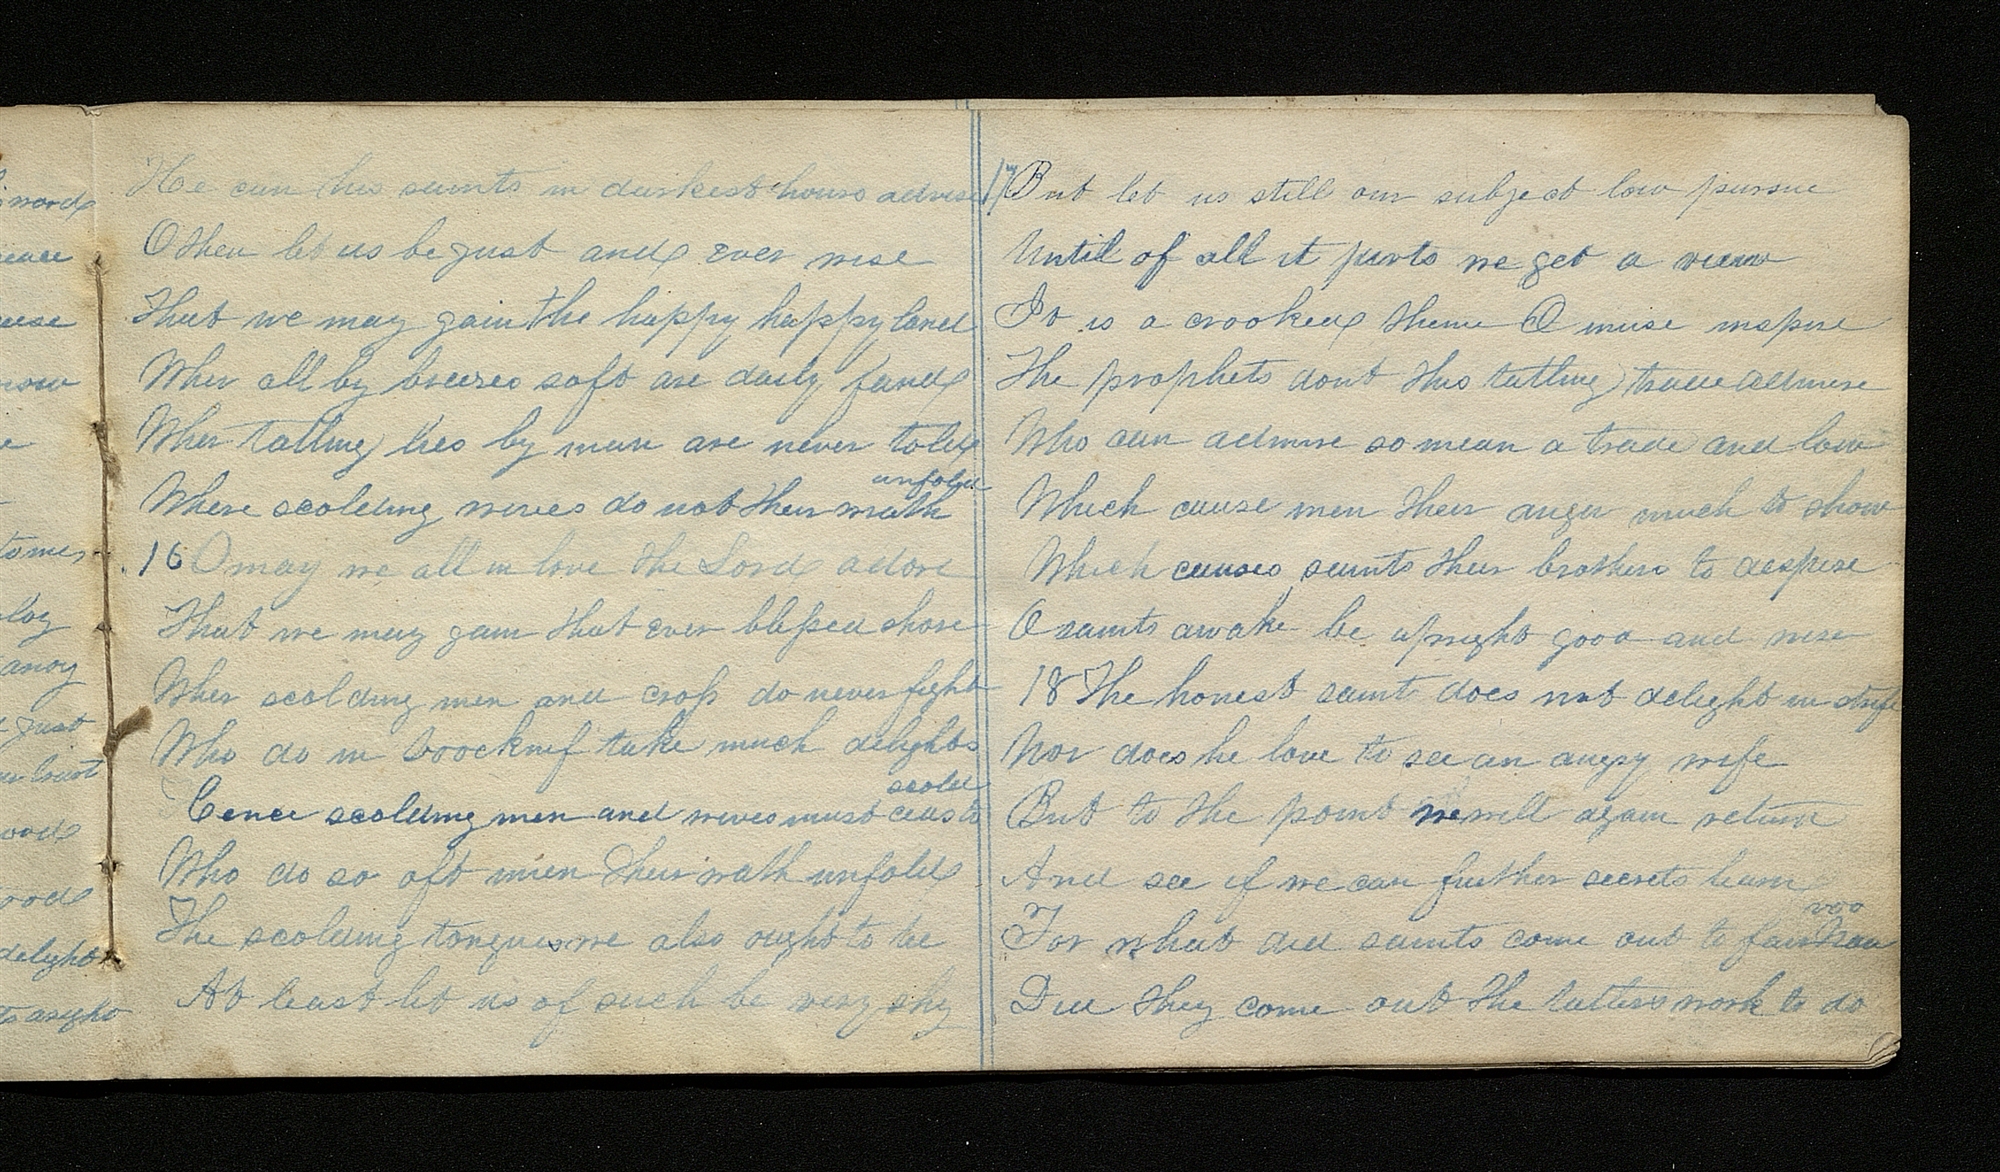 He can his saints in darkest hours advise
O then let us be just and ever wise
That we may gain the happy happy land
Wher all by breezes soft are daily fand
Wher tatling lies by man are never told
Where scolding wives do not their wrath unfold
16 O may we all in love the Lord adore
That we may gain that ever blessed shore
Wher scolding men and cross do never fight
Who do in take much delights
Cence scolding men and wives must ceas to scold
Who do so oft mien their wrath unfold
The scolding tongues we also ought to he
At least let us of such be very shy
17 But let us still our subject low pursue
Until of all it parts we get a view
It is a crooked theme O muse inspire
The prophets dont this tatling trade admire
Who can admire so mean a trade and low
Which cause men their anger much to show
Which causes saints their brothers to despise
O saints awake be upright good and wise
18 The honest saint does not delight in strife
Nor does he love to see an angry wife
But to the point we will again return
And see if we can further secrets learn
For what did saints come out to fair Nauvoo
Did they come out the tatlers work to do
word
now
loy
anoy
just
ood
ood
delight